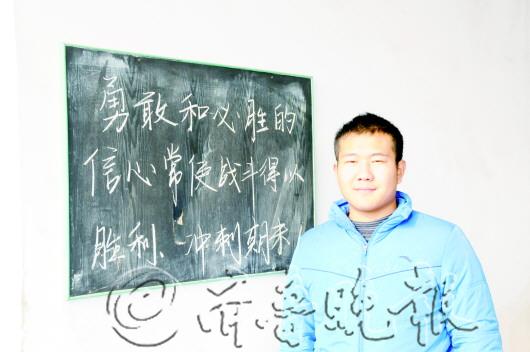 勇敢和必胜的
信心常使战斗得以
胜利、冲刺期末！
@齐鲁晚报